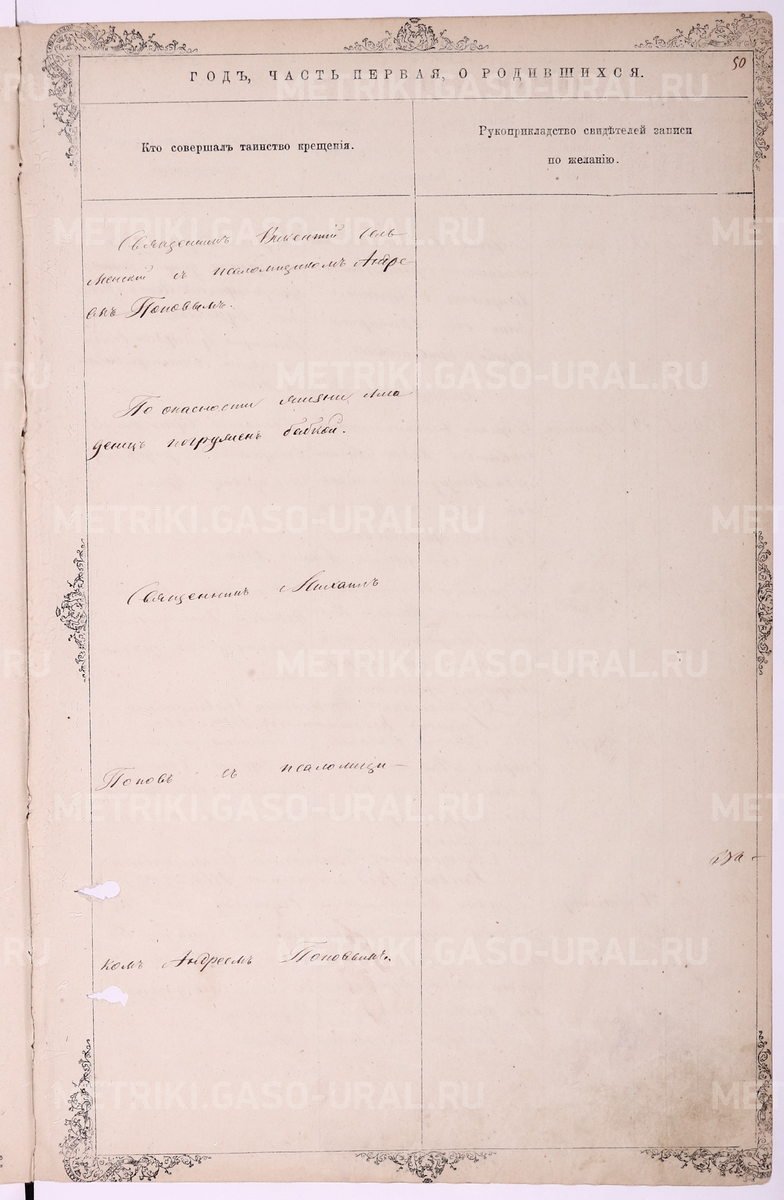 50
ГОДЪ, ЧАСТЬ ПЕРВАЯ, О РОДИВШИХСЯ.
Кто совершалъ таинство крещенія.
Рукоприкладство свидѣтелей записи
по желанію.
Священникъ Викентій
съ псаломщикомъ Андре
емъ Поповымъ.
По опасности жизни мла
денецъ погруженъ бабкой.
Священникъ Михаилъ
Поповъ съ псаломщи-
комъ Андреемъ Поповымъ.
METRIKI.GASO-URAL.RU